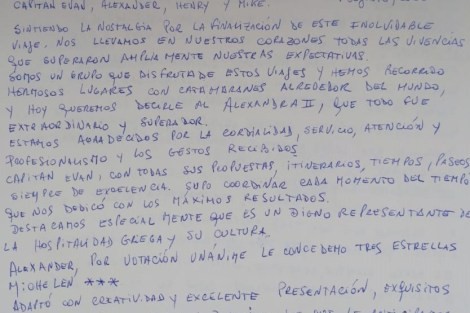 CAPITÁN EVAN, ALEXANDER, HENRY Y MIKE.
SINTIENDO LA NOSTALGIA POR LA FINALIZACIÓN DE ESTE INOLVIDABLE
VIAJE. NOS LLEVAMOS EN NUESTROS CORAZONES TODAS LAS VIVENCIAS
QUE SUPERARON AMPLIAMENTE NUESTRAS EXPECTATIVAS.
SOMOS UN GRUPO QUE DISFRUTA DE ESTOS VIAJES Y HEMOS RECORRIDO
HERMOSOS LUGARES CON CATAMARANES ALREDEDOR DEL MUNDO,
Y HOY QUEREMOS DECIRLE AL ALEXANDRA II, QUE TODO FUE
EXTRAORDINARIO Y SUPERADOR.
ESTAMOS AGRADECIDOS POR LA CORDIALIDAD, SERVICIO, ATENCIÓN Y
PROFESIONALISMO Y LOS GESTOS RECIBIDOS.
CAPITÁN EVAN, CON TODAS SUS PROPUESTAS, ITINERARIOS, TIEMPOS, PASEOS
SIEMPRE DE EXCELENCIA. SUPO COORDINAR CADA MOMENTO DEL TIEMPO
QUE NOS DEDICÓ CON LOS MÁXIMOS RESULTADOS.
DESTACAMOS ESPECIALMENTE QUE ES UN DIGNO REPRESENTANTE DE
LA HOSPITALIDAD GRIEGA Y SU CULTURA.
ALEXANDER, POR VOTACIÓN UNÁNIME LE CONCEDEMO TRES ESTRELLAS
MICHELEN ***
ADAPTÓ CON CREATIVIDAD Y EXCELENTE PRESENTACIÓN, EXQUISITOS